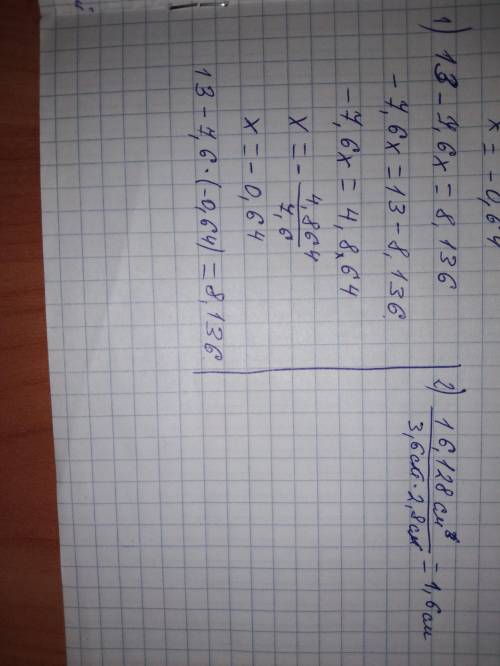 x = -0,64
1) 13 - 7,6x = 8,136
- 7,6x = 13 - 8,136
-7,6x = 4,864
x = - 4,864 / 7,6
x = -0,64
13 - 7,6 · (-0,64) = 8,136
2) 16,128 см³ / 3,6 см · 2,8 см = 1,6 см